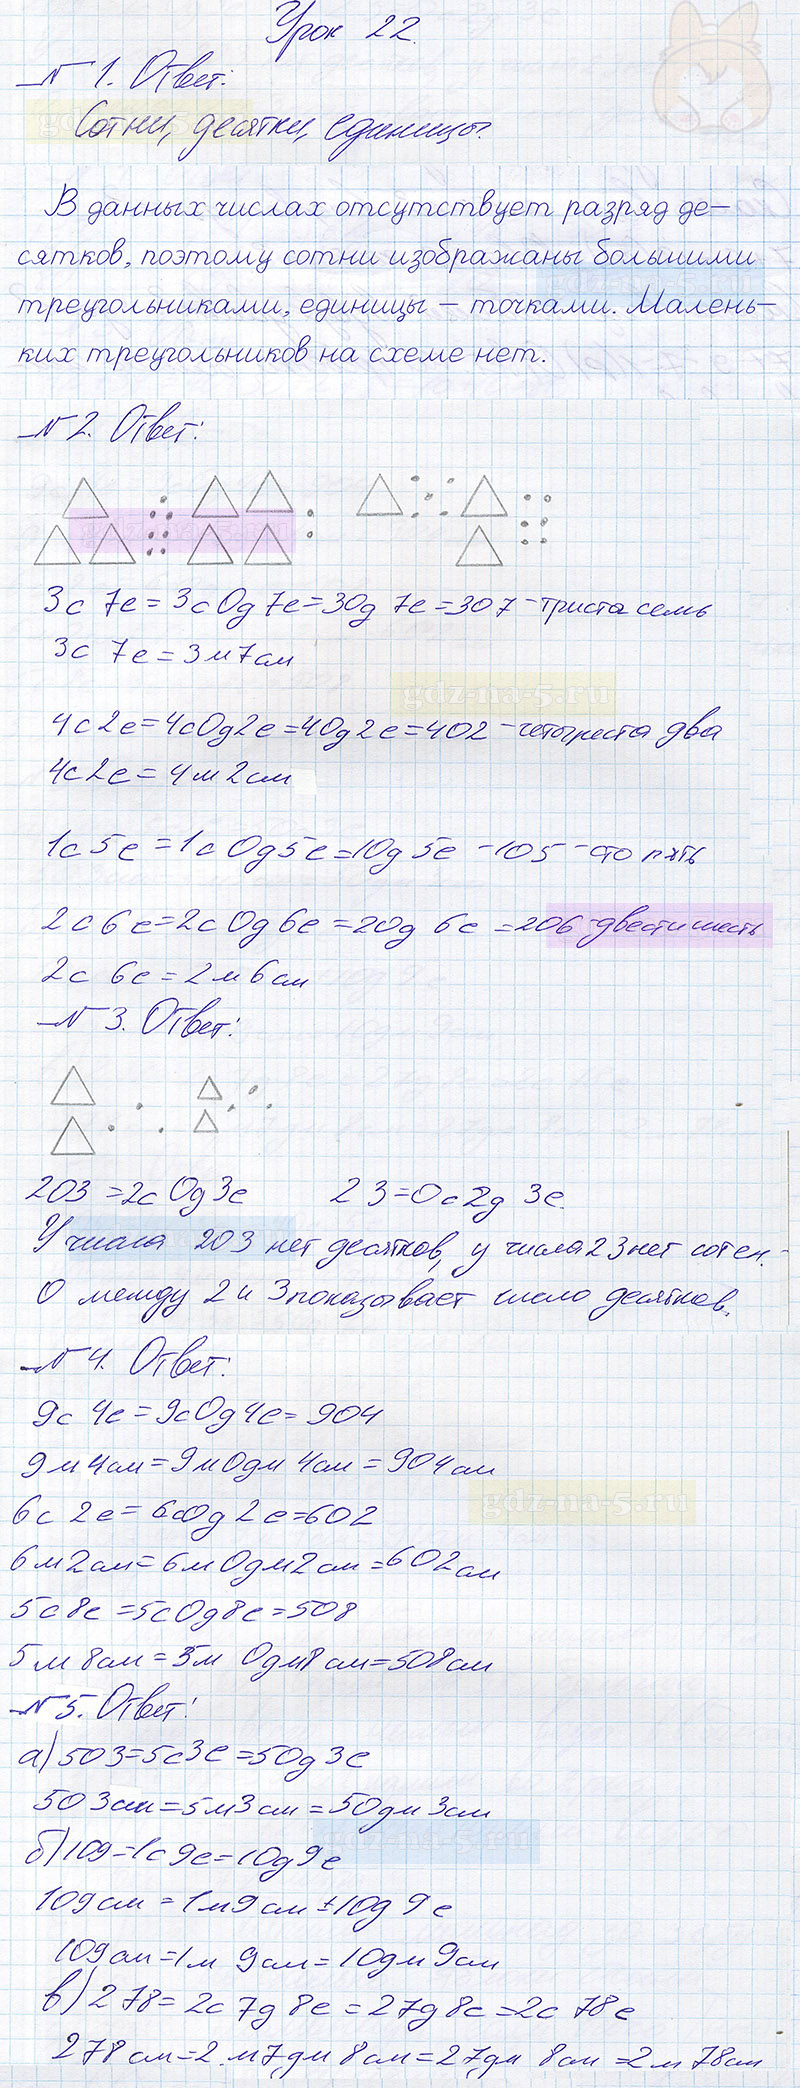 Урок 22.
№ 1. Ответ:
Сотни, десятки, единицы.
В данных числах отсутствует разряд де-
сятков, поэтому сотни изображаны большими
треугольниками, единицы – точками. Малень-
ких треугольников на схеме нет.
№ 2. Ответ:
3с 7е = 3с 0д 7е = 30д 7е = 307 – триста семь
3с 7е = 3м 7см
gdz-na-5.ru
4с 2е = 4с 0д 2е = 40д 2е = 402 – четыреста два
4с 2е = 4м 2см
1с 5е = 1с 0д 5е = 10д 5е – 105 – сто пять
2с 6е = 2с 0д 6е = 20д 6е = 206 – двести шесть
2с 6е = 2м 6см
№ 3. Ответ:
203 = 2с 0д 3е 23 = 0с 2д 3е.
У числа 203 нет десятков, у числа 23 нет сотен.
0 между 2 и 3 показывает число десятков.
№ 4. Ответ:
9с 4е = 9с 0д 4е = 904
9м 4см = 9м 0дм 4см = 904см
gdz-na-5.ru
6с 2е = 6с 0д 2е = 602
6м 2см = 6м 0дм 2см = 602см
5с 8е = 5с 0д 8е = 508
5м 8см = 5м 0дм 8см = 508см
№ 5. Ответ:
а) 503 = 5с 3е = 50д 3е
503см = 5м 3см = 50дм 3см
б) 109 = 1с 9е = 10д 9е
109см = 1м 9см = 10д 9е
109см = 1м 9см = 10дм 9см
в) 278 = 2с 7д 8е = 27д 8е = 2с 78е
278см = 2м 7дм 8см = 27дм 8см = 2м 78см